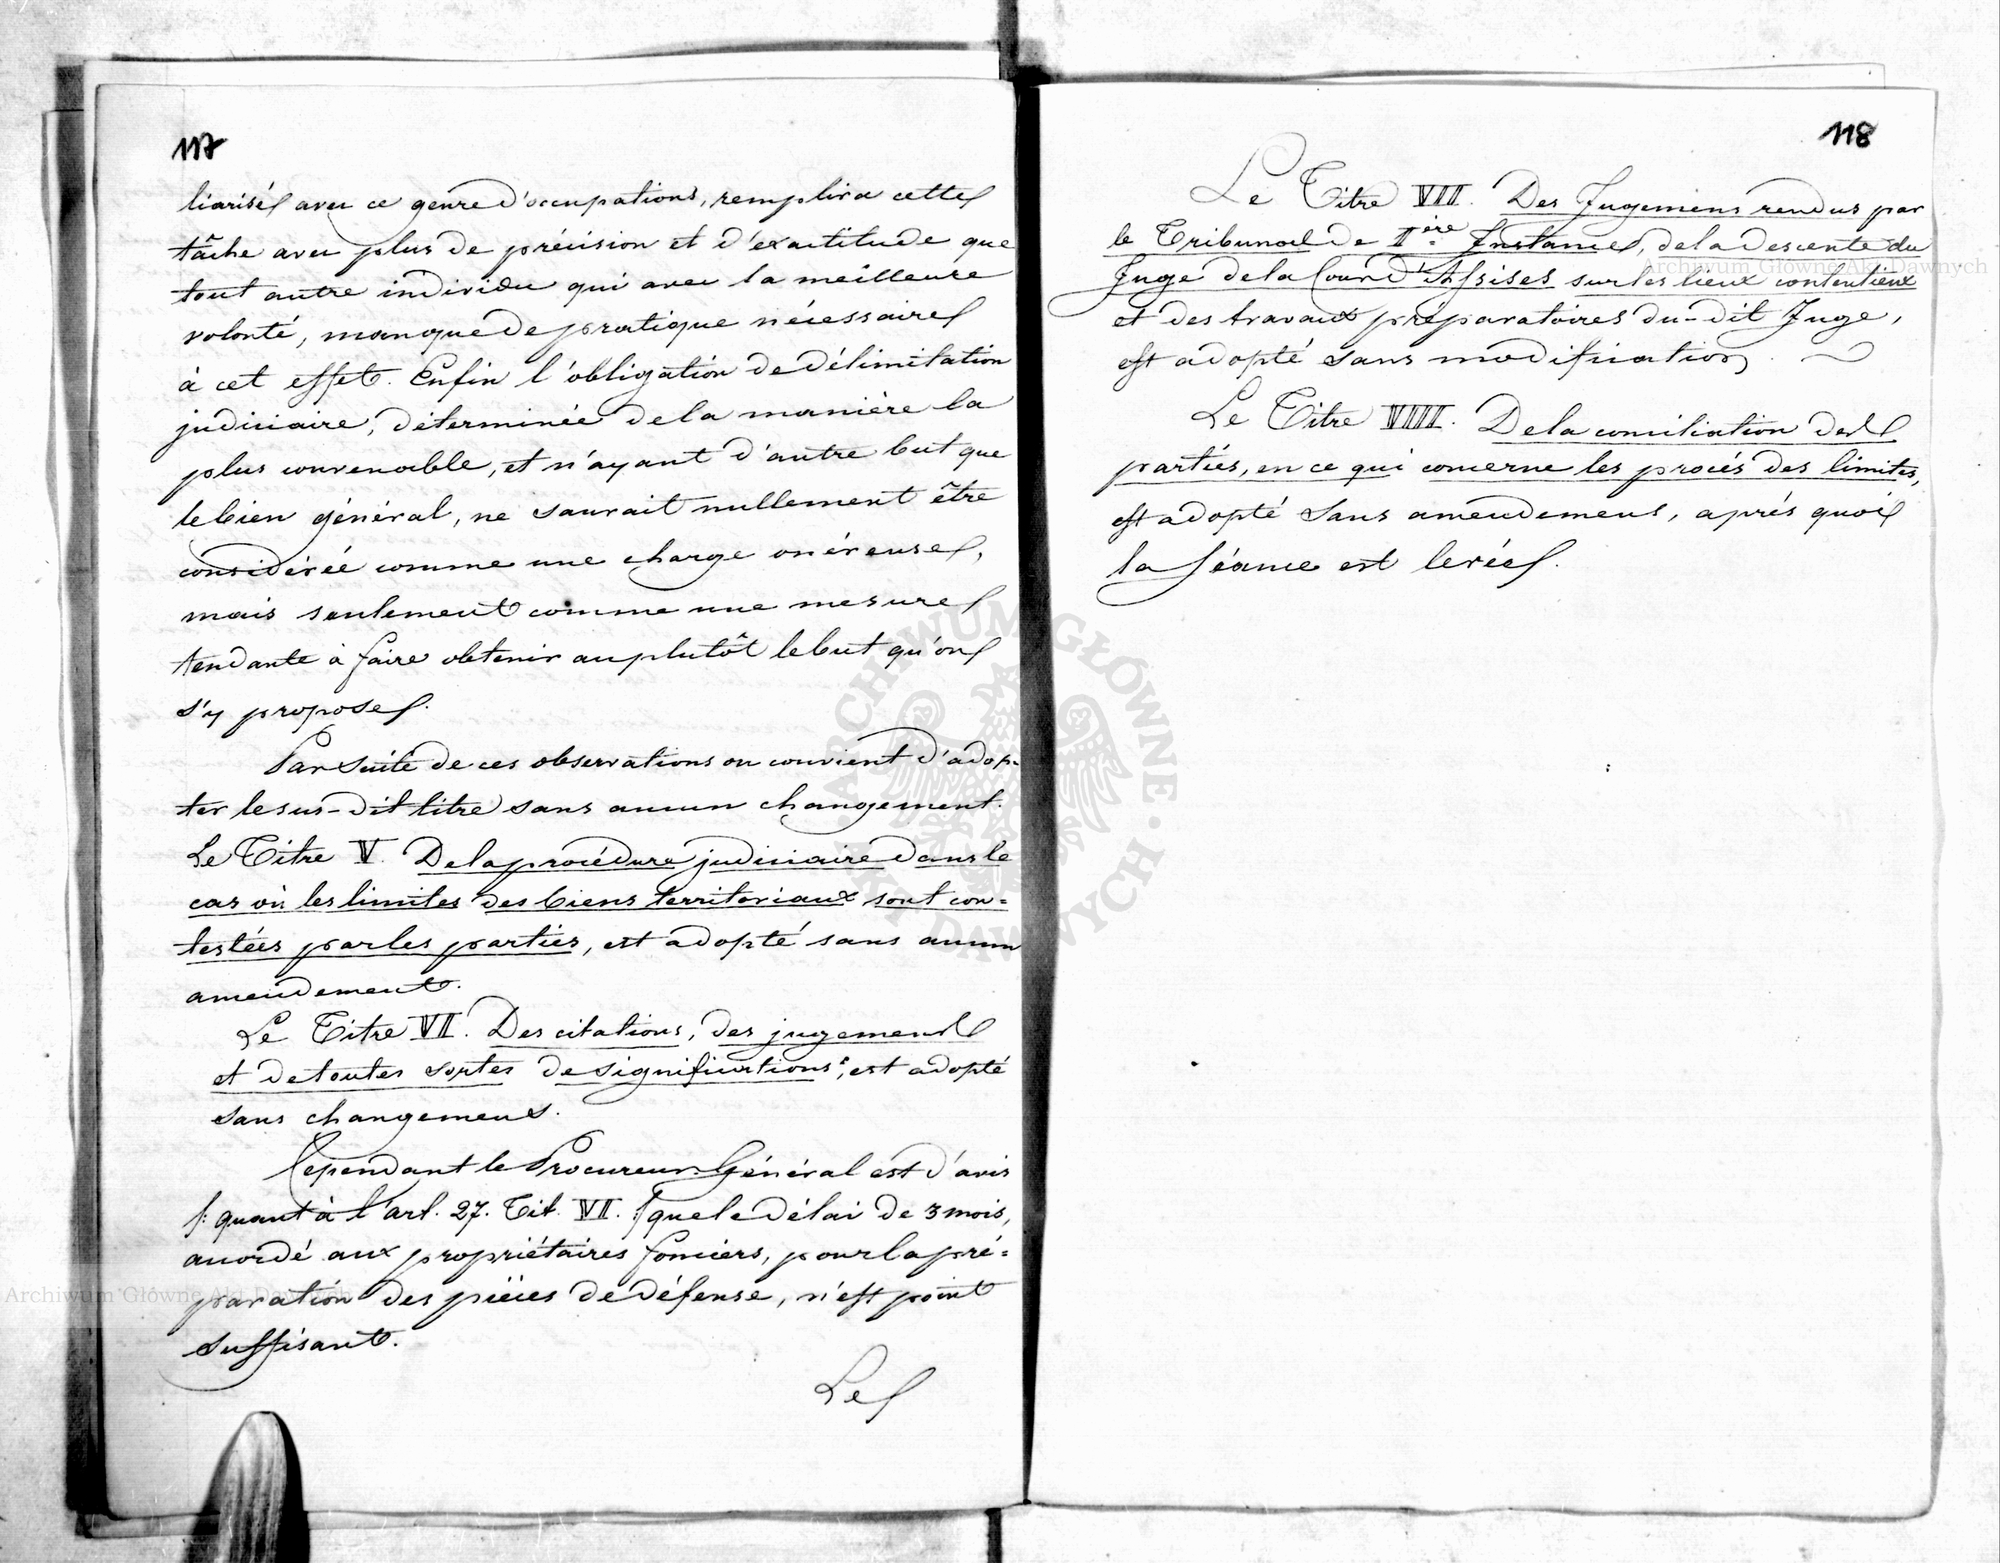 117
liarisé avec ce genre d'occupations, remplira cette
tâche avec plus de précision et d'exactitude que
tout autre individu qui avec la meilleure
volonté, manque de pratique nécessaire
à cet effet. Enfin l'obligation de délimitation
judiciaire, déterminée de la manière la
plus convenable, et n'ayant d'autre but que
le bien général, ne saurait nullement être
considérée comme une charge onéreuse,
mais seulement comme une mesure
tendante à faire obtenir au plutôt le but qu'on
s'y propose.
Par suite de ces observations on convient d'adop-
ter le sus-dit titre sans aucun changement.
Le Titre V. De la procédure judiciaire dans le
cas où les limites des biens territoriaux sont con=
testées par les parties, est adopté sans aucun
amendement.
Le Titre VI. Des citations, des jugemens
et de toutes sortes de significations, est adopté
sans changemens.
Cependant le Procureur Général est d'avis
/: quant à l'art. 27. Tit. VI. :/ que le délai de 3 mois,
accordé aux propriétaires fonciers, pour la pré=
paration des pièces de défense, n'est point
suffisant.
Le
118
Le Titre VII. Des Jugemens rendus par
le Tribunal de Ière Instance, de la descente du
Juge de la Cour d'Assises sur les lieux contentieux
et des travaux préparatoires du-dit Juge,
est adopté sans modification.
Le Titre VIII. De la conciliation des
parties, en ce qui concerne les procés des limites,
est adopté sans amendemens, aprés quoi
la séance est levée.
ARCHIWUM GŁÓWNE AKT DAWNYCH
Archiwum Główne Akt Dawnych
Archiwum Główne Akt Dawnych